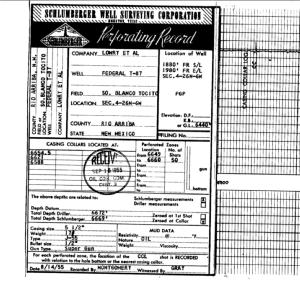 SCHLUMBERGER WELL SURVEYING CORPORATION
HOUSTON, TEXAS
Perforating Record
SCHLUMBERGER
COUNTY RIO ARRIBA, N.M.
FIELD or LOCATION SO. BLANCO TOCITO
WELL FEDERAL T-87
COMPANY LOWRY ET AL
COMPANY LOWRY ET AL
WELL FEDERAL T-87
FIELD SO. BLANCO TOCITO
LOCATION SEC.4-26N-6W
COUNTY RIO ARRIBA
STATE NEW MEXICO
Location of Well
1880' FR S/L
1980' FR E/L
SEC.4-26N-6W
PGP
Elevation: D.F.:
K.B.:
or G.L. 6440'
FILING No.
CASING COLLARS LOCATED AT:
6654.5
6621
6588
Perforated Zones
Location
from 6645
to 6660
No. of Shots
50
gun
from
to
bottom
RECEIVED
SEP 1 1955
OIL CON. COM.
DIST. 3
The above depths are related to:
Schlumberger measurements
Driller measurements
Depth Datum
Total Depth Driller 6672'
Total Depth Schlumberger 6669'
Zeroed at 1st Shot
Zeroed at Collar
Casing size 5 1/2"
Weight 17#
Type J-55
Bullet size 1/2"
Gun Type Super Gun
MUD DATA
Resistivity @ °F.
Nature OIL
Weight Viscosity
For each perforated zone, the location of the COL shot is RECORDED
with relation to the hole bottom or the nearest casing collar.
Date 8/14/55 Recorded By MONTGOMERY Witnessed By GRAY
CASING COLLAR LOG